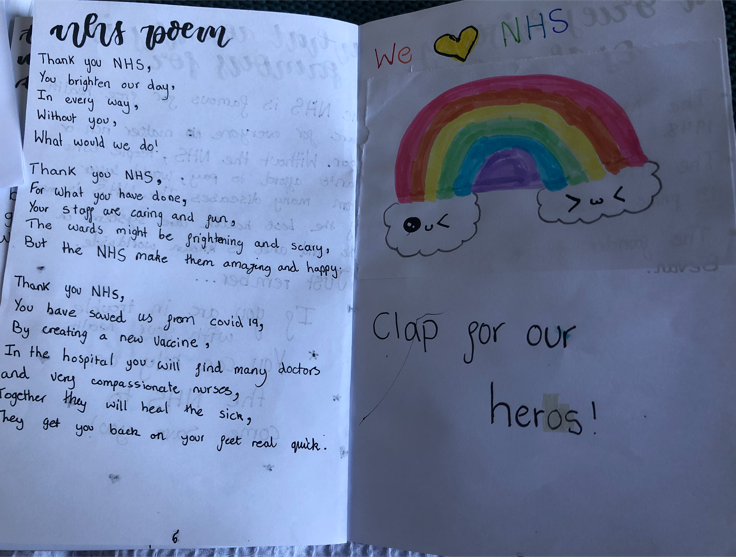 nhs poem
Thank you NHS,
You brighten our day,
In every way,
Without you,
What would we do!
Thank you NHS,
For what you have done,
Your staff are caring and fun,
The wards might be frightening and scary,
But the NHS make them amazing and happy.
Thank you NHS,
You have saved us from covid 19,
By creating a new vaccine,
In the hospital you will find many doctors
and very compassionate nurses,
Together they will heal the sick,
They get you back on your feet real quick.
6
We NHS
Clap for our
heros!